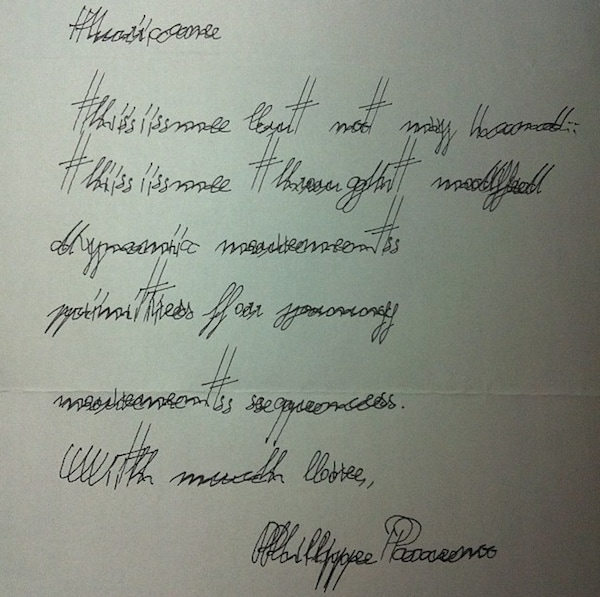 this is me but not my hand:
this is me through modified
dynamic movements
primitives for
movements sequences.
With much love,
Philippe Parreno